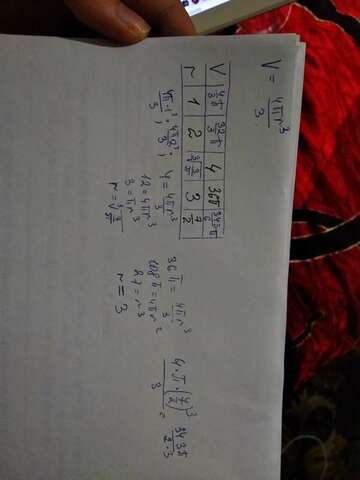 V = 4πr³/3
V | 4π/3 | 32π/3 | 4 | 36π | 343π/6
r | 1 | 2 | ∛(3/π) | 3 | 7/2
4π·1³/3 ; 4π2³/3 ; 4 = 4πr³/3
12 = 4πr³
3 = πr³
r = ∛(3/π)
36π = 4πr³/3
108π = 4πr³
27 = r³
r = 3
4·π·(7/2)³/3 = 343π/2·3